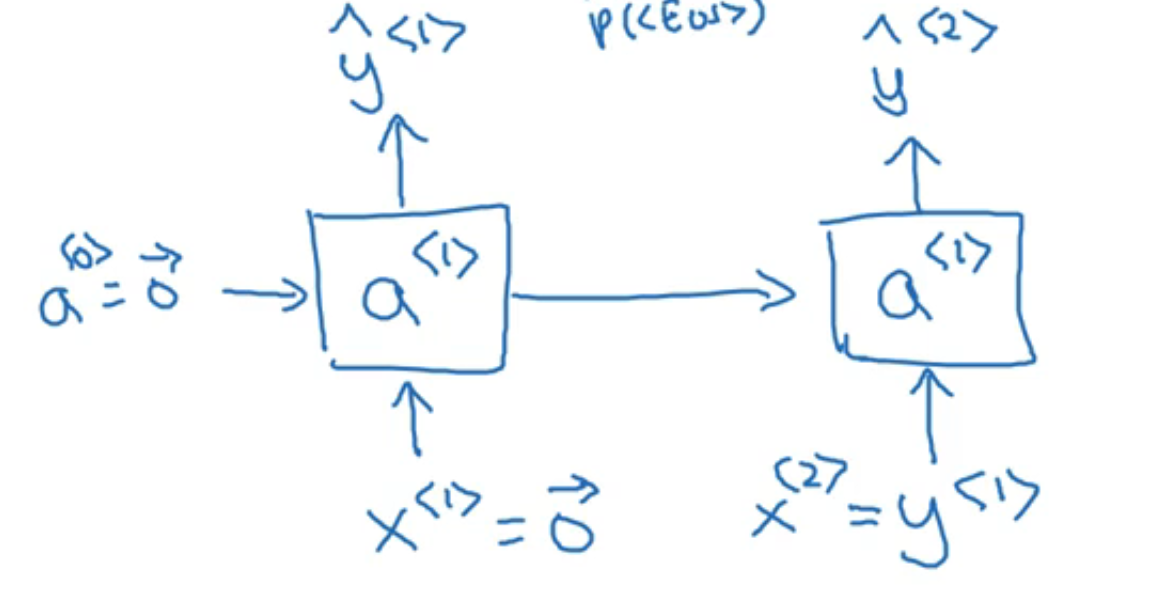 ŷ<1> p(<EOS>) ŷ<2>
a<0> = 0⃗ → a<1> → a<1>
x<1> = 0⃗ x<2> = y<1>